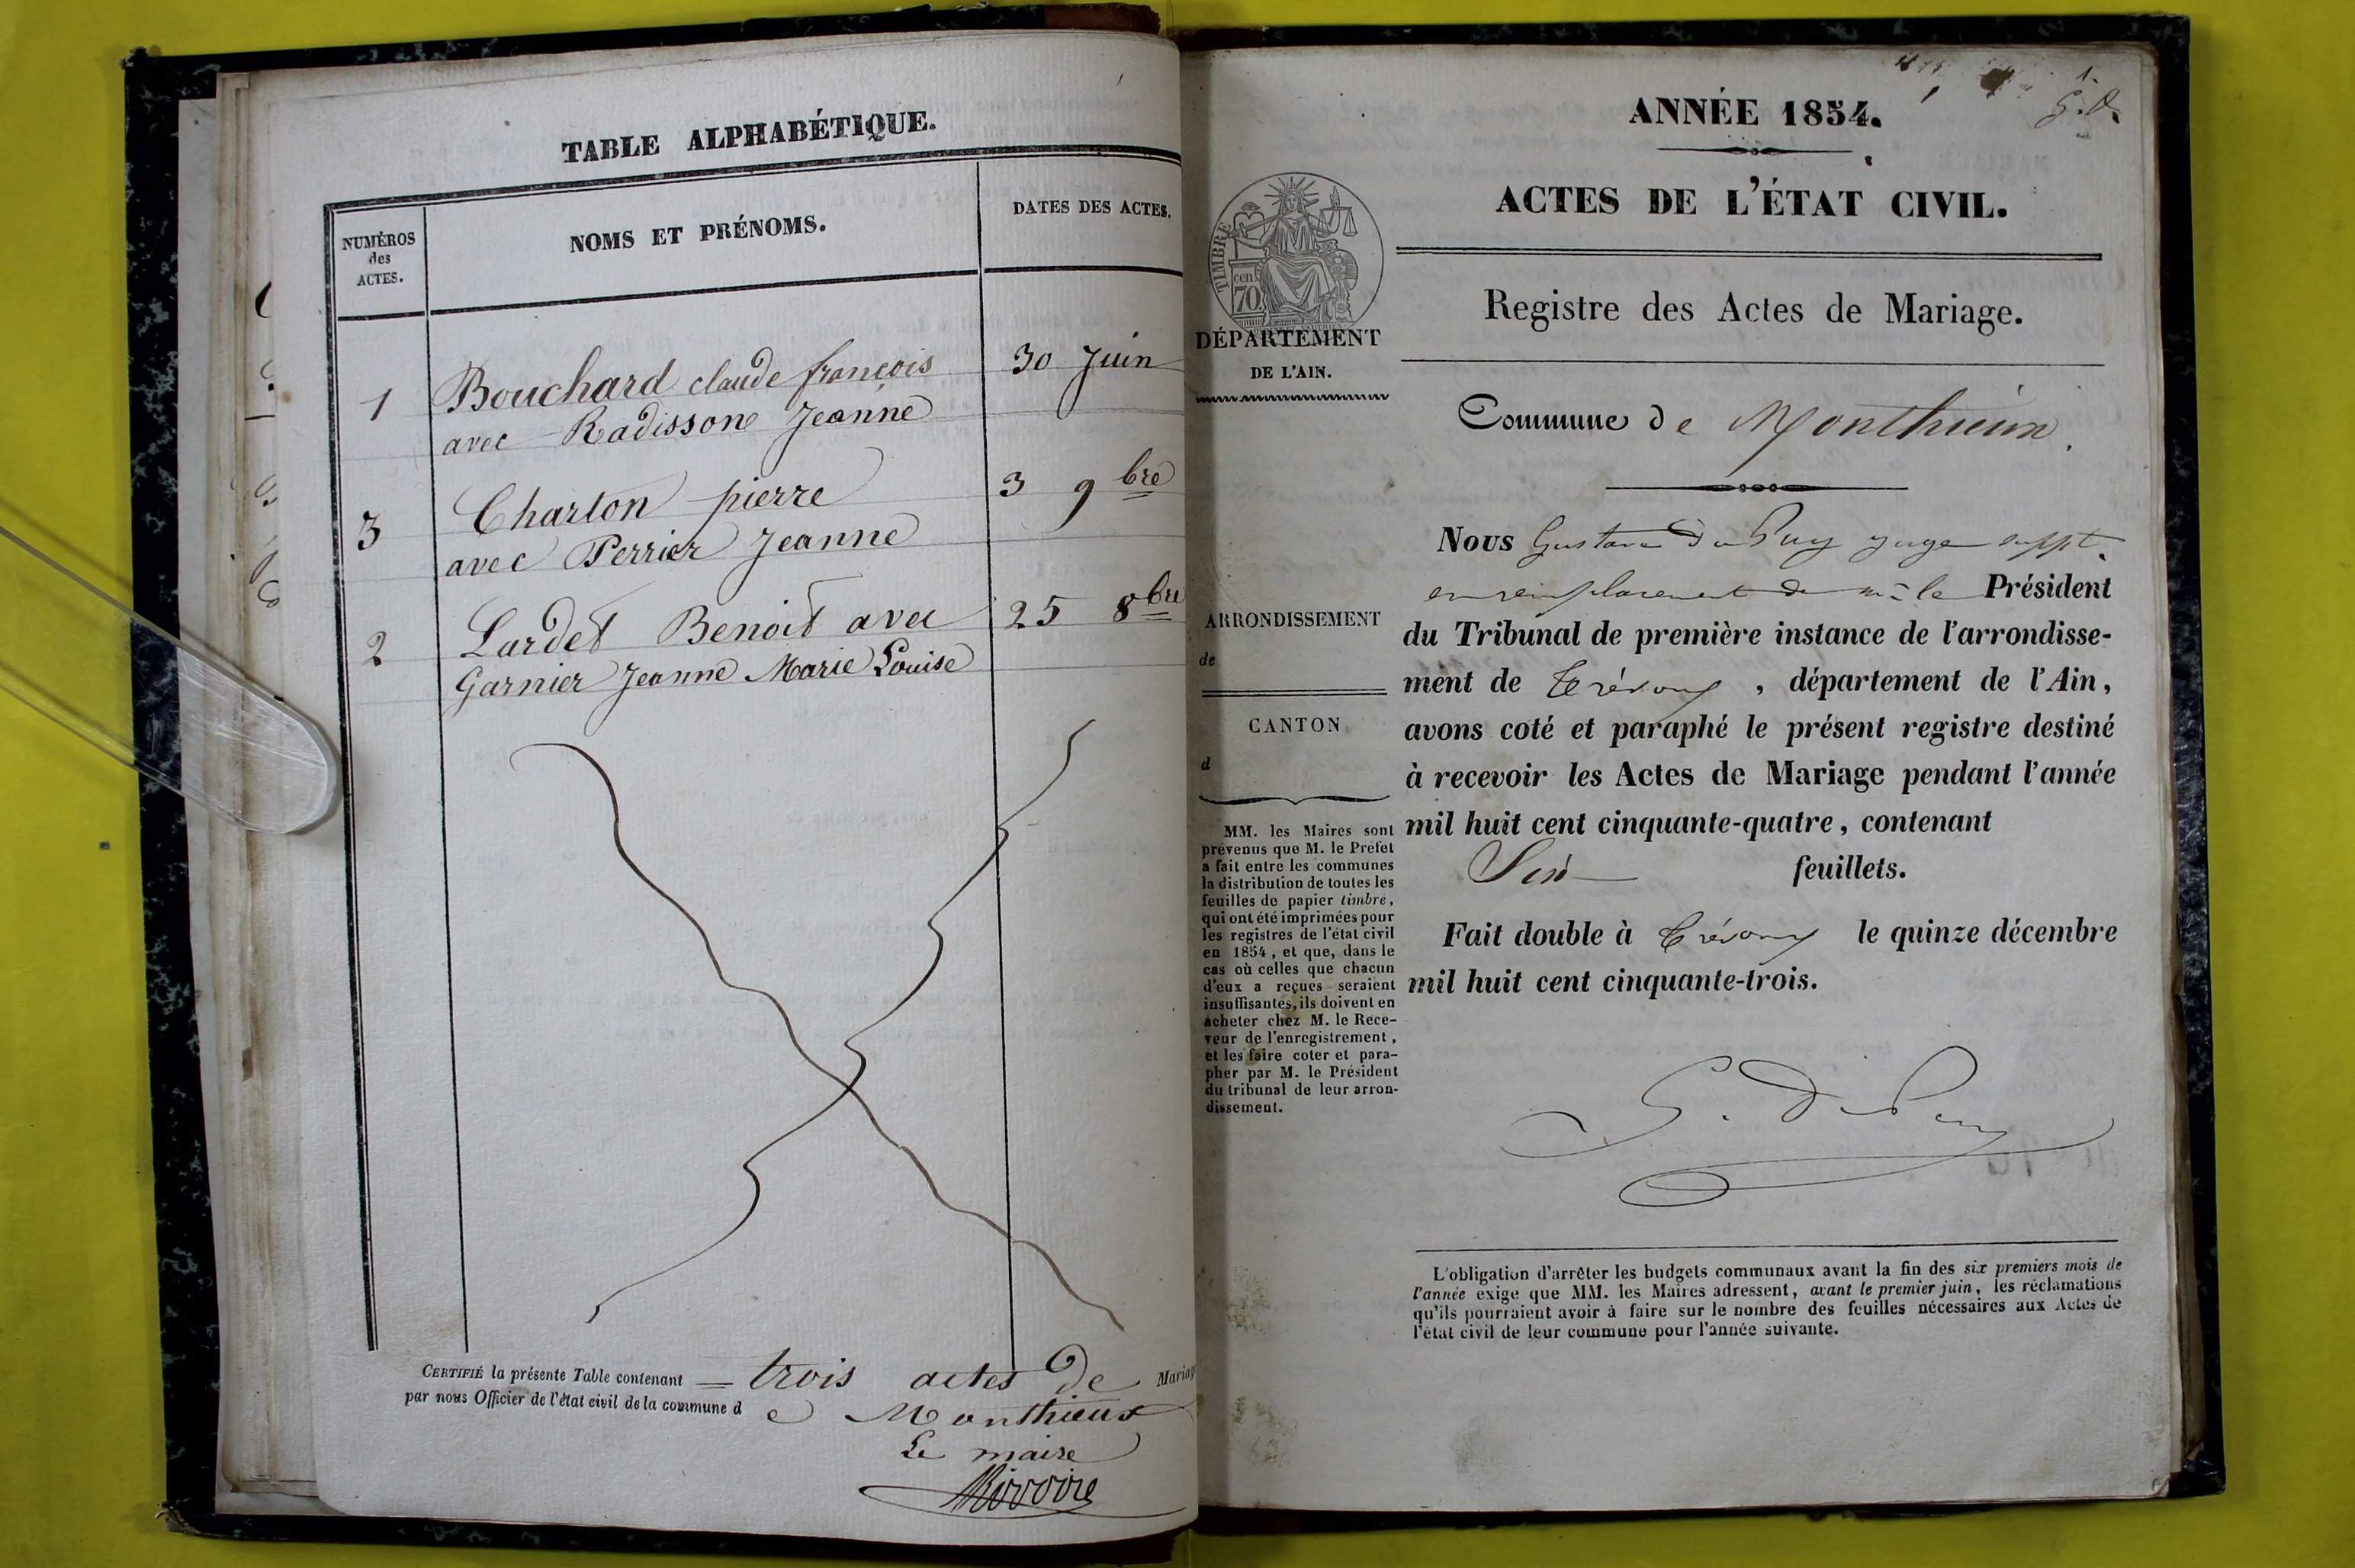 TABLE ALPHABÉTIQUE.
NUMÉROS
des
ACTES.
NOMS ET PRÉNOMS.
DATES DES ACTES.
1 Bouchard claude françois 30 Juin
avec Radisson Jeanne
3 Charton pierre 3 9bre
avec Perrier Jeanne
2 Lardet Benoit avec 25 8bre
Garnier Jeanne Marie Louise
CERTIFIÉ la présente Table contenant trois actes de Mariag
par nous Officier de l'état civil de la commune d e Monthieux
Le maire
ANNÉE 1854.
1.
G.D.
ACTES DE L'ÉTAT CIVIL.
TIMBRE
70 cen
DÉPARTEMENT
DE L'AIN.
Registre des Actes de Mariage.
Commune de Monthieux.
ARRONDISSEMENT
de
CANTON
d
MM. les Maires sont
prévenus que M. le Préfet
a fait entre les communes
la distribution de toutes les
feuilles de papier timbré,
qui ont été imprimées pour
les registres de l'état civil
en 1854, et que, dans le
cas où celles que chacun
d'eux a reçues seraient
insuffisantes, ils doivent en
acheter chez M. le Rece-
veur de l'enregistrement,
et les faire coter et para-
pher par M. le Président
du tribunal de leur arron-
dissement.
Nous Gustave Du Puy juge suppt.
en remplacement de m. le Président
du Tribunal de première instance de l'arrondisse-
ment de Trévoux, département de l'Ain,
avons coté et paraphé le présent registre destiné
à recevoir les Actes de Mariage pendant l'année
mil huit cent cinquante-quatre, contenant
Six feuillets.
Fait double à Trévoux le quinze décembre
mil huit cent cinquante-trois.
G. Du Puy
L'obligation d'arrêter les budgets communaux avant la fin des six premiers mois de
l'année exige que MM. les Maires adressent, avant le premier juin, les réclamations
qu'ils pourraient avoir à faire sur le nombre des feuilles nécessaires aux Actes de
l'état civil de leur commune pour l'année suivante.